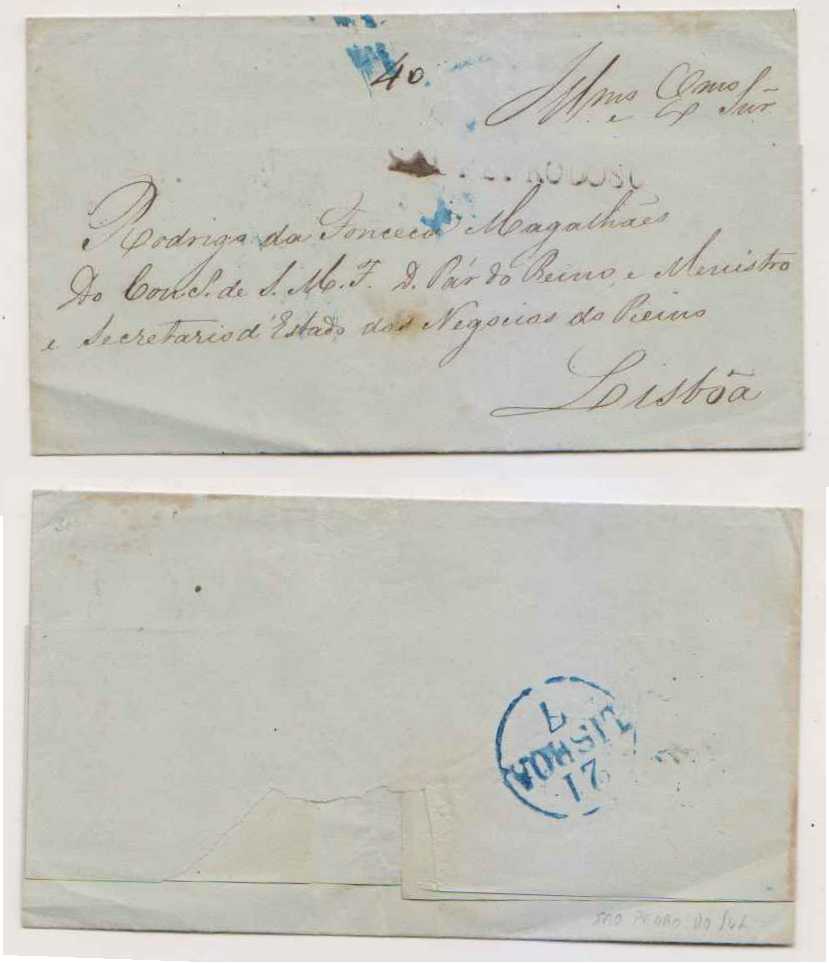 40
Illmo e Exmo Snr
PEDRODOSU
Rodrigo da Fonceca Magalhães
Do Cons. de S. M. F. D. Pár do Reino, e Menistro
e Secretario d'Estado dos Negocios do Reino
Lisbõa
7
LISBOA
21
SÃO PEDRO DO SUL